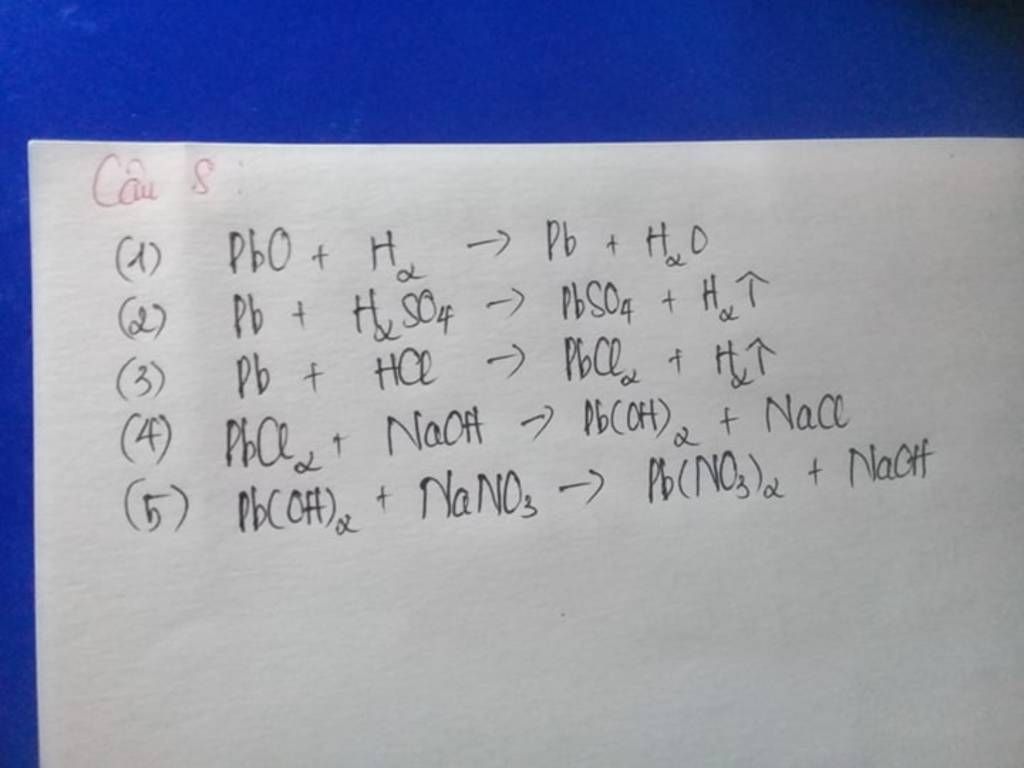 Câu 8 :
(1) PbO + H₂ → Pb + H₂O
(2) Pb + H₂SO₄ → PbSO₄ + H₂↑
(3) Pb + HCl → PbCl₂ + H₂↑
(4) PbCl₂ + NaOH → Pb(OH)₂ + NaCl
(5) Pb(OH)₂ + NaNO₃ → Pb(NO₃)₂ + NaOH